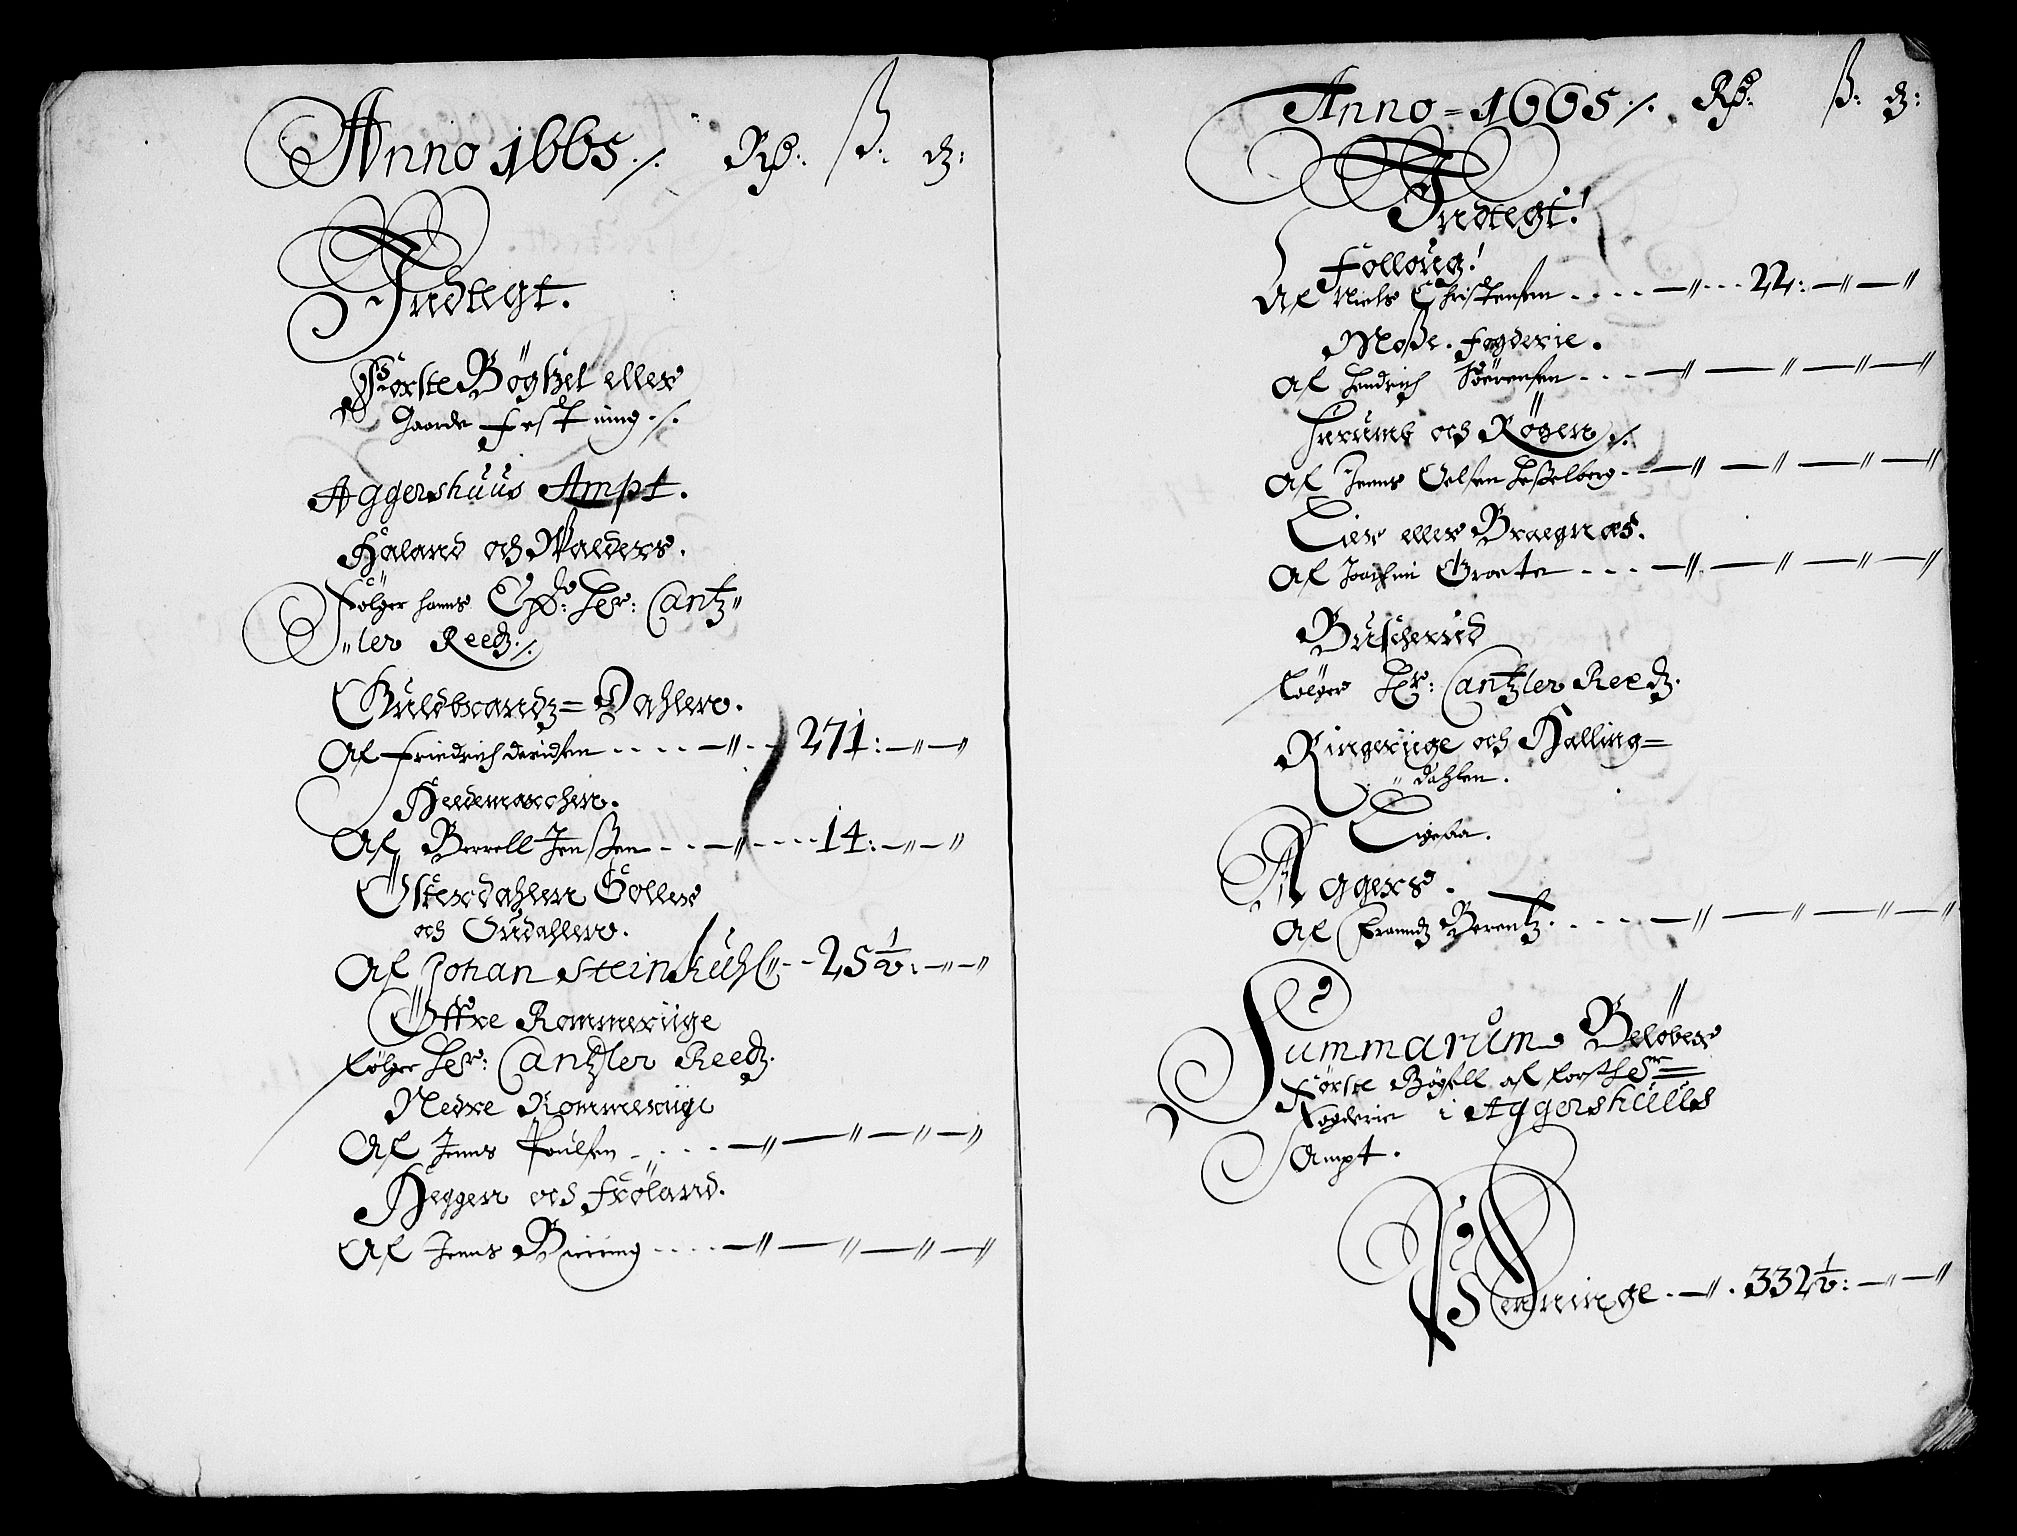 Anno 1665 ./. Rd: ß: d:
Indtegt.
Förste Bögtzel eller
Gaarde festning ./.
Aggershuus Ampt.
Haland och Walders.
Følger hanns Exp: Her: Cantz"
"ler Reedz ./.
Guldbrandz= Dahlen.
Af Friedrich Davidsen - - - - — " - - 271: — " — "
Heedemarchen.
Af Berrell Jenßen - - - — " - - - - 14: — " — "
Österdahlen Soller
och Oudahlen.
Af Johan Steinkuhl " - - 25 1/2: — " — "
Öffre Rommeriige
følger Her: Cantzler Reedz.
Nedre Rommeriige
Af Jenns Poulsen - . - - - — " — " — " — "
Heggen och Fröland.
Af Jenns Biering - - - - — " — " — " — "
Anno = 1665 ./. Rd: ß: d:
Indtegt!
Folloug!
Af Niels Christensen - - - - — " - - - 22: — " — "
Moße. fogderie.
Af Hendrich Sörensen - - - — " — " — " — "
Hurumb och Rögen ./.
Af Jenns Oelsen Heßelberg - - — " — " — " — "
Lier eller Bragnæs.
Af Joachim Grotte - - - — " — " — " — "
Buscherud
følger Her: Cantzler Reedz.
Ringeriige och Halling=
"dahlen.
Ligesaa.
Aggers.
Af Franndz Berentz. - - - - — " — " — " — "
Summarum Beløber
Förste Bögsell af forschr:ne
fogderier i Aggershuuss
Ampt.
Penninge. — " . 332 1/2: — " — "